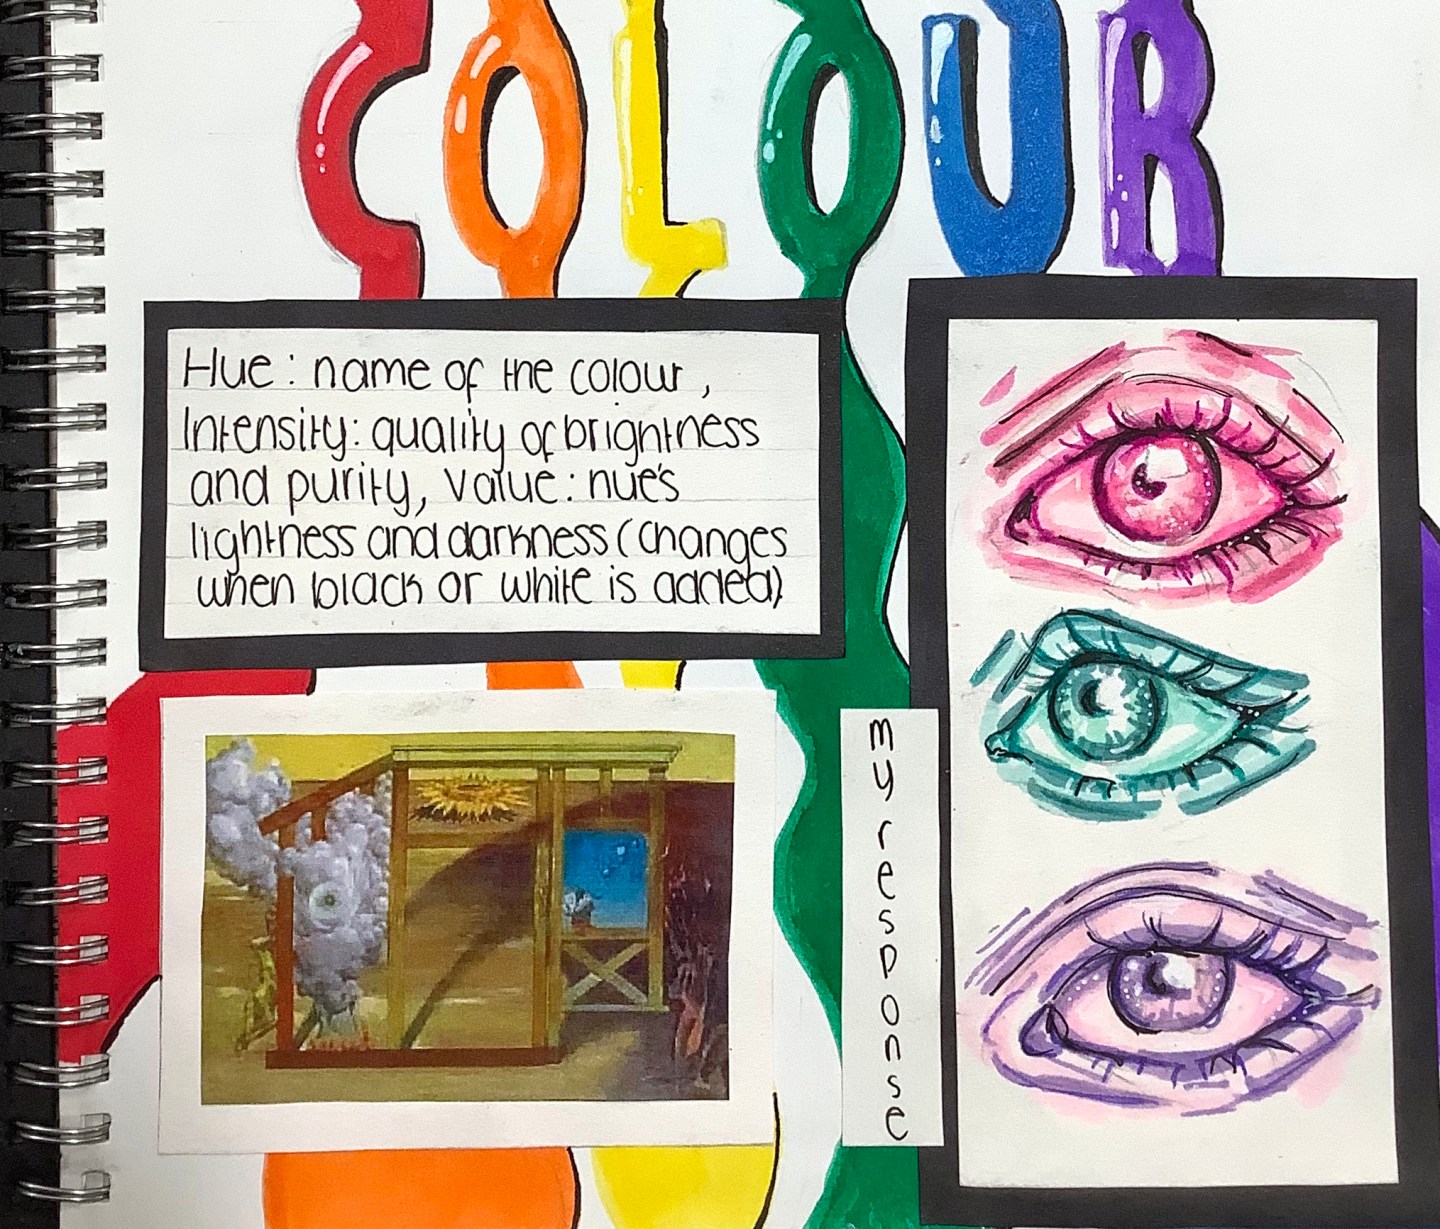 COLOUR
Hue: name of the colour,
Intensity: quality of brightness
and purity, value: hue's
lightness and darkness (changes
when black or white is added)
my response